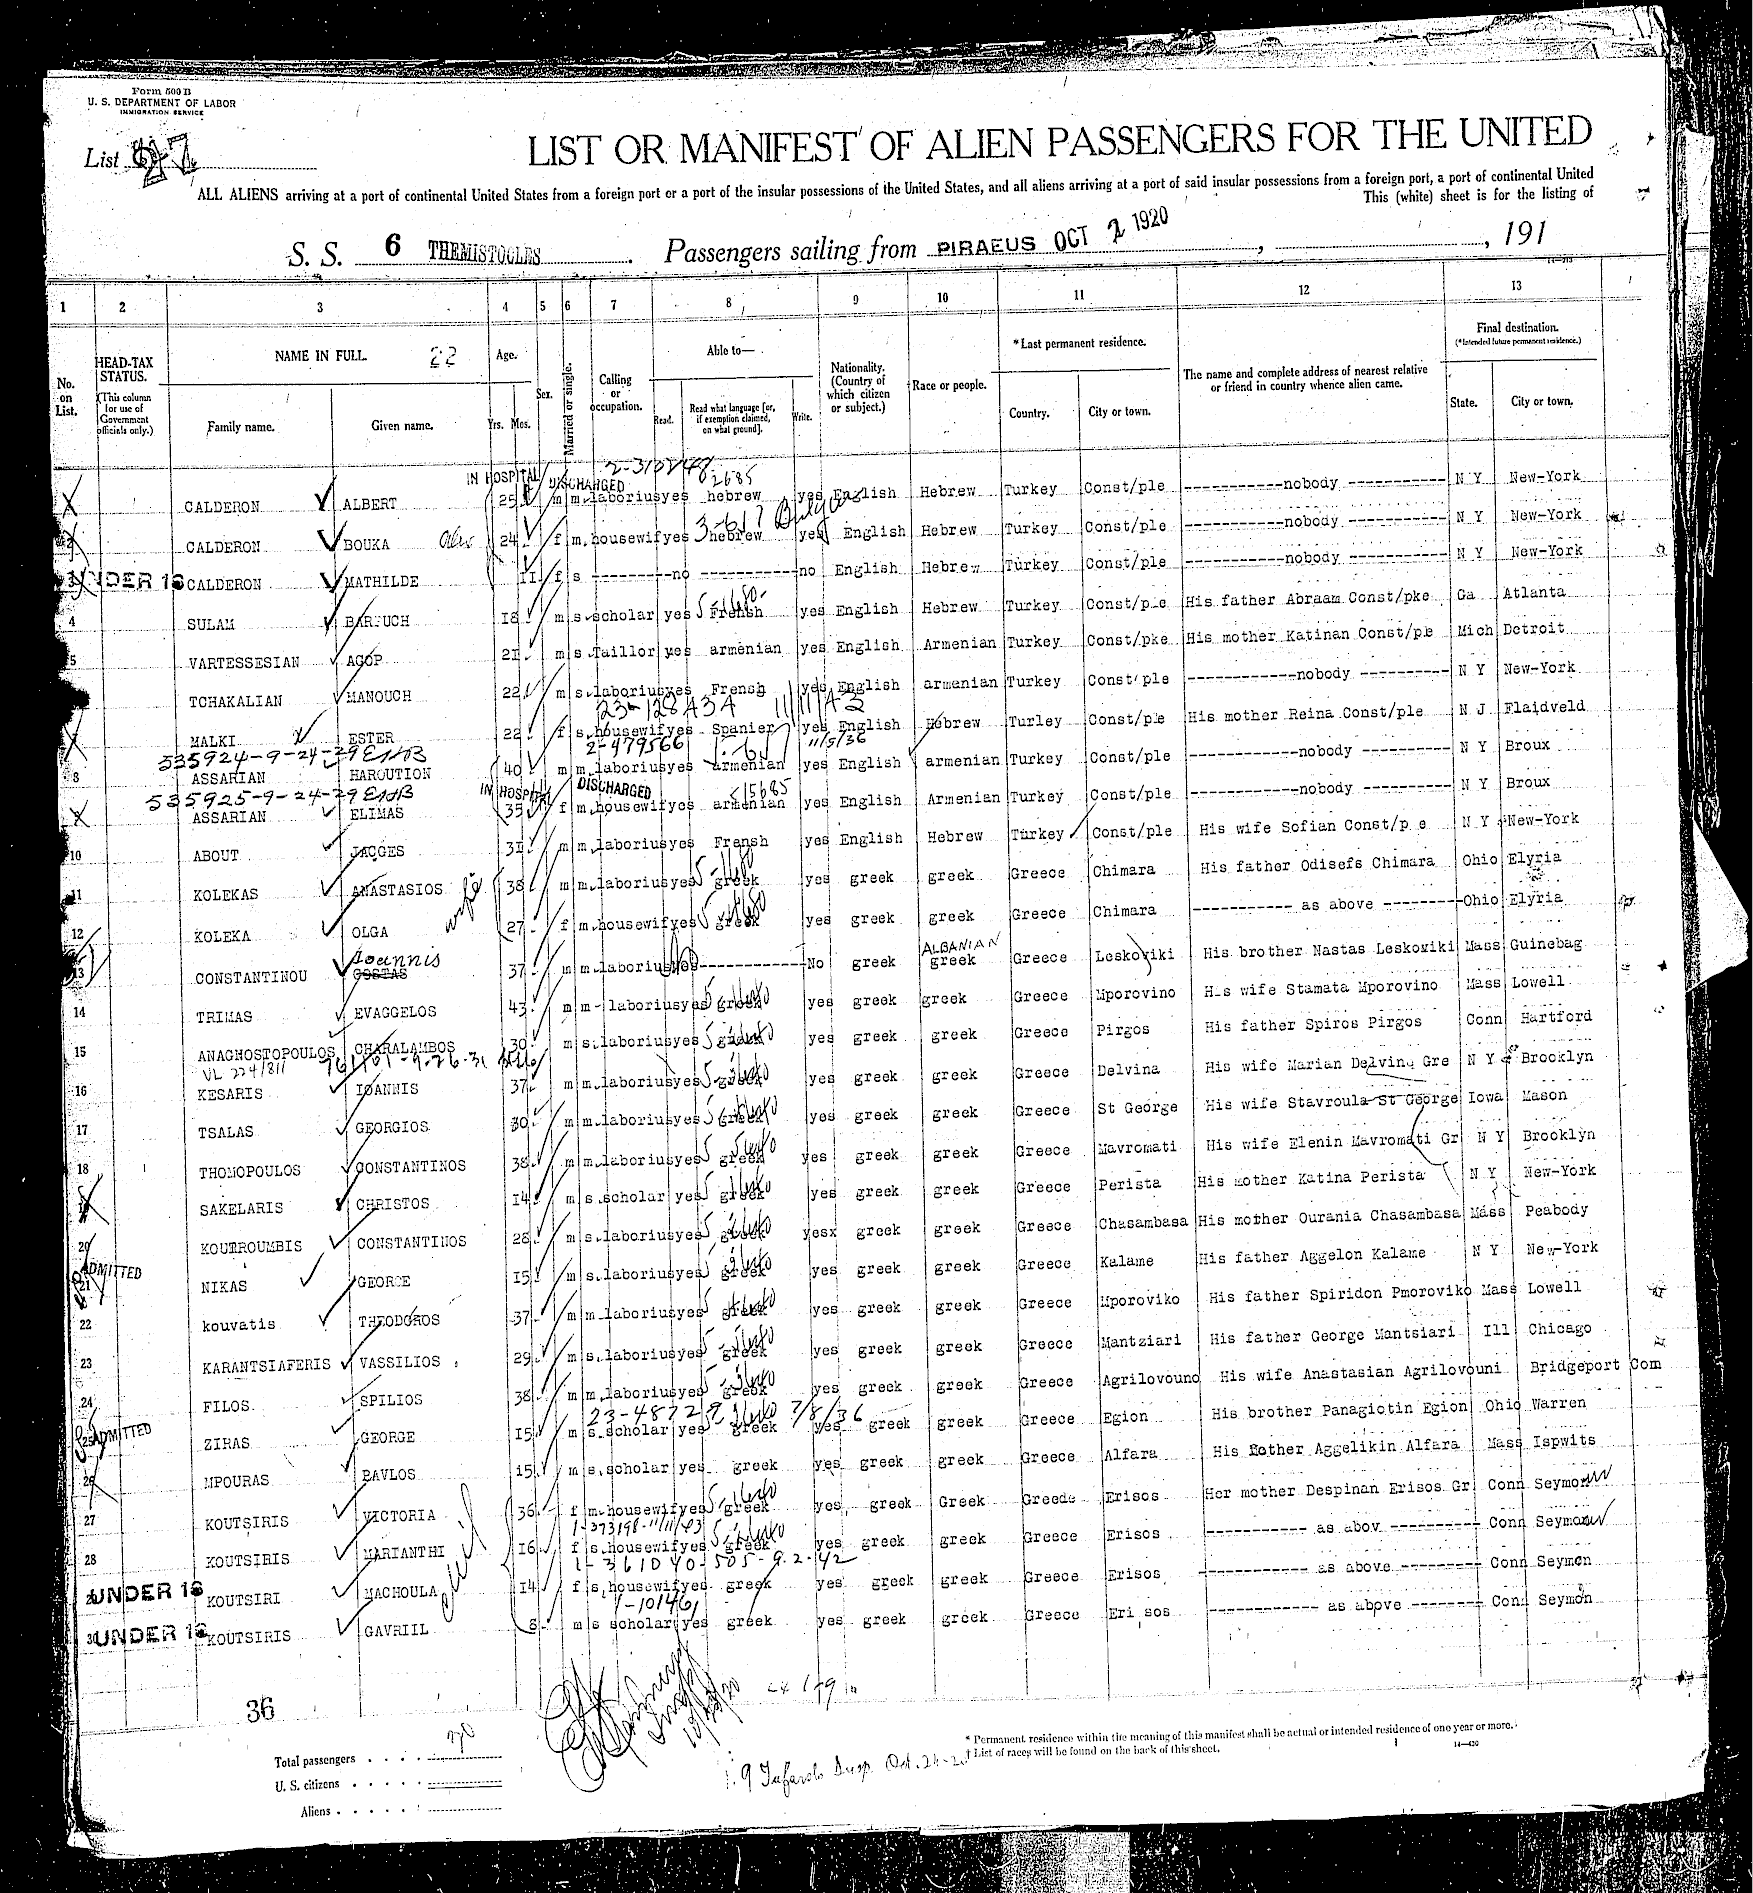 Form 500 B
U. S. DEPARTMENT OF LABOR
IMMIGRATION SERVICE
List
LIST OR MANIFEST OF ALIEN PASSENGERS FOR THE UNITED
ALL ALIENS arriving at a port of continental United States from a foreign port or a port of the insular possessions of the United States, and all aliens arriving at a port of said insular possessions from a foreign port, a port of continental United
This (white) sheet is for the listing of
S. S. 6 THEMISTOCLES. Passengers sailing from PIRAEUS OCT 2 1920, , 191
1 2 3 4 5 6 7 8 9 10 11 12 13
No. on List.
HEAD-TAX STATUS.
(This column for use of Government officials only.)
NAME IN FULL. 22
Family name. Given name.
Age.
Yrs. Mos.
Sex.
Married or single.
Calling or occupation.
Able to—
Read. Read what language [or, if exemption claimed, on what ground]. Write.
Nationality. (Country of which citizen or subject.)
Race or people.
*Last permanent residence.
Country. City or town.
The name and complete address of nearest relative or friend in country whence alien came.
Final destination.
(*Intended future permanent residence.)
State. City or town.
IN HOSPITAL DISCHARGED
CALDERON ALBERT 25 m m laborius yes hebrew yes English Hebrew Turkey Const/ple ------------nobody ----------- N Y New-York
CALDERON BOUKA 24 f m. housewif yes hebrew yes English Hebrew Turkey Const/ple ------------nobody ----------- N Y New-York
UNDER 16 CALDERON MATHILDE 11 f s ---------no -----------no English Hebrew Turkey Const/ple ------------nobody ----------- N Y New-York
4 SULAM BARUCH 18 m s. scholar yes Frensh yes English Hebrew Turkey Const/ple His father Abraam Const/pke Ga Atlanta
5 VARTESSESIAN AGOP 21 m s Taillor yes armenian yes English Armenian Turkey Const/pke His mother Katinan Const/ple Mich Detroit
TCHAKALIAN MANOUCH 22 m s. laborius yes Frensh yes English armenian Turkey Const'ple ------------nobody ----------- N Y New-York
23-128434 11/11/42
MALKI ESTER 22 f s housewif yes Spanier yes English Hebrew Turley Const/ple His mother Reina Const/ple N J Flaidveld
535924-9-24-29 2-479566 11/5/36
8 ASSARIAN HAROUTION 40 m m. laborius yes armenian yes English armenian Turkey Const/ple ------------nobody ----------- N Y Broux
535925-9-24-29 IN HOSPITAL DISCHARGED
ASSARIAN ELIMAS 35 f m. housewif yes armenian yes English Armenian Turkey Const/ple ------------nobody ----------- N Y Broux
10 ABOUT JACGES 31 m m. laborius yes Frensh yes English Hebrew Turkey Const/ple His wife Sofian Const/p e N Y New-York
11 KOLEKAS ANASTASIOS 38 m m. laborius yes greek yes greek greek Greece Chimara His father Odisefs Chimara Ohio Elyria
12 KOLEKA OLGA wife 27 f m. housewif yes greek yes greek greek Greece Chimara ----------- as above -------- Ohio Elyria
13 CONSTANTINOU Joannis COSTAS 37 m m. laborius No ------------No greek ALBANIAN greek Greece Leskoviki His brother Nastas Leskoviki Mass Guinebag
14 TRIMAS EVAGGELOS 43 m m- laborius yes greek yes greek greek Greece Mporovino His wife Stamata Mporovino Mass Lowell
15 ANAGHOSTOPOULOS CHARALAMBOS 30 m s. laborius yes greek yes greek greek Greece Pirgos His father Spiros Pirgos Conn Hartford
16 KESARIS IOANNIS 37 m m. laborius yes greek yes greek greek Greece Delvina His wife Marian Delvina Gre N Y Brooklyn
17 TSALAS GEORGIOS 30 m m. laborius yes greek yes greek greek Greece St George His wife Stavroula St George Iowa Mason
18 THOMOPOULOS CONSTANTINOS 38 m m. laborius yes greek yes greek greek Greece Mavromati His wife Elenin Mavromati Gr N Y Brooklyn
SAKELARIS CHRISTOS 14 m s. scholar yes greek yes greek greek Greece Perista His mother Katina Perista N Y New-York
20 KOUTROUMBIS CONSTANTINOS 28 m s. laborius yes greek yesx greek greek Greece Chasambasa His mother Ourania Chasambasa Mass Peabody
ADMITTED
21 NIKAS GEORGE 15 m s. laborius yes greek yes greek greek Greece Kalame His father Aggelon Kalame N Y New-York
22 kouvatis THEODOROS 37 m m. laborius yes greek yes greek greek Greece Mporoviko His father Spiridon Pmoroviko Mass Lowell
23 KARANTSIAFERIS VASSILIOS 29 m s. laborius yes greek yes greek greek Greece Mantziari His father George Mantsiari Ill Chicago
24 FILOS SPILIOS 38 m m. laborius yes greek yes greek greek Greece Agrilovouno His wife Anastasian Agrilovouni Bridgeport Com
23-48729 7/8/36
ADMITTED
25 ZIRAS GEORGE 15 m s. scholar yes greek yes greek greek Greece Egion His brother Panagiotin Egion Ohio Warren
26 MPOURAS PAVLOS 15 m s. scholar yes greek yes greek greek Greece Alfara His Bother Aggelikin Alfara Mass Ispwits
27 KOUTSIRIS VICTORIA 36 f m. housewif yes greek yes greek Greek Greede Erisos Her mother Despinan Erisos Gr Conn Seymon
1-373198-11/11/43
28 KOUTSIRIS MARIANTHI 16 f s. housewif yes greek yes greek greek Greece Erisos ----------- as abov ---------- Conn Seymon
1-361040-505-9.2.42
UNDER 16 KOUTSIRI MACHOULA 14 f s. housewif yes greek yes greek greek Greece Erisos ----------- as above --------- Conn Seymon
1-101461
30 UNDER 16 KOUTSIRIS GAVRIIL 8 m s scholar yes greek yes greek greek Greece Eri sos ------------ as above -------- Conn Seymon
36
Total passengers . . . .
U. S. citizens . . . . .
Aliens . . . . . .
* Permanent residence within the meaning of this manifest shall be actual or intended residence of one year or more.
† List of races will be found on the back of this sheet.